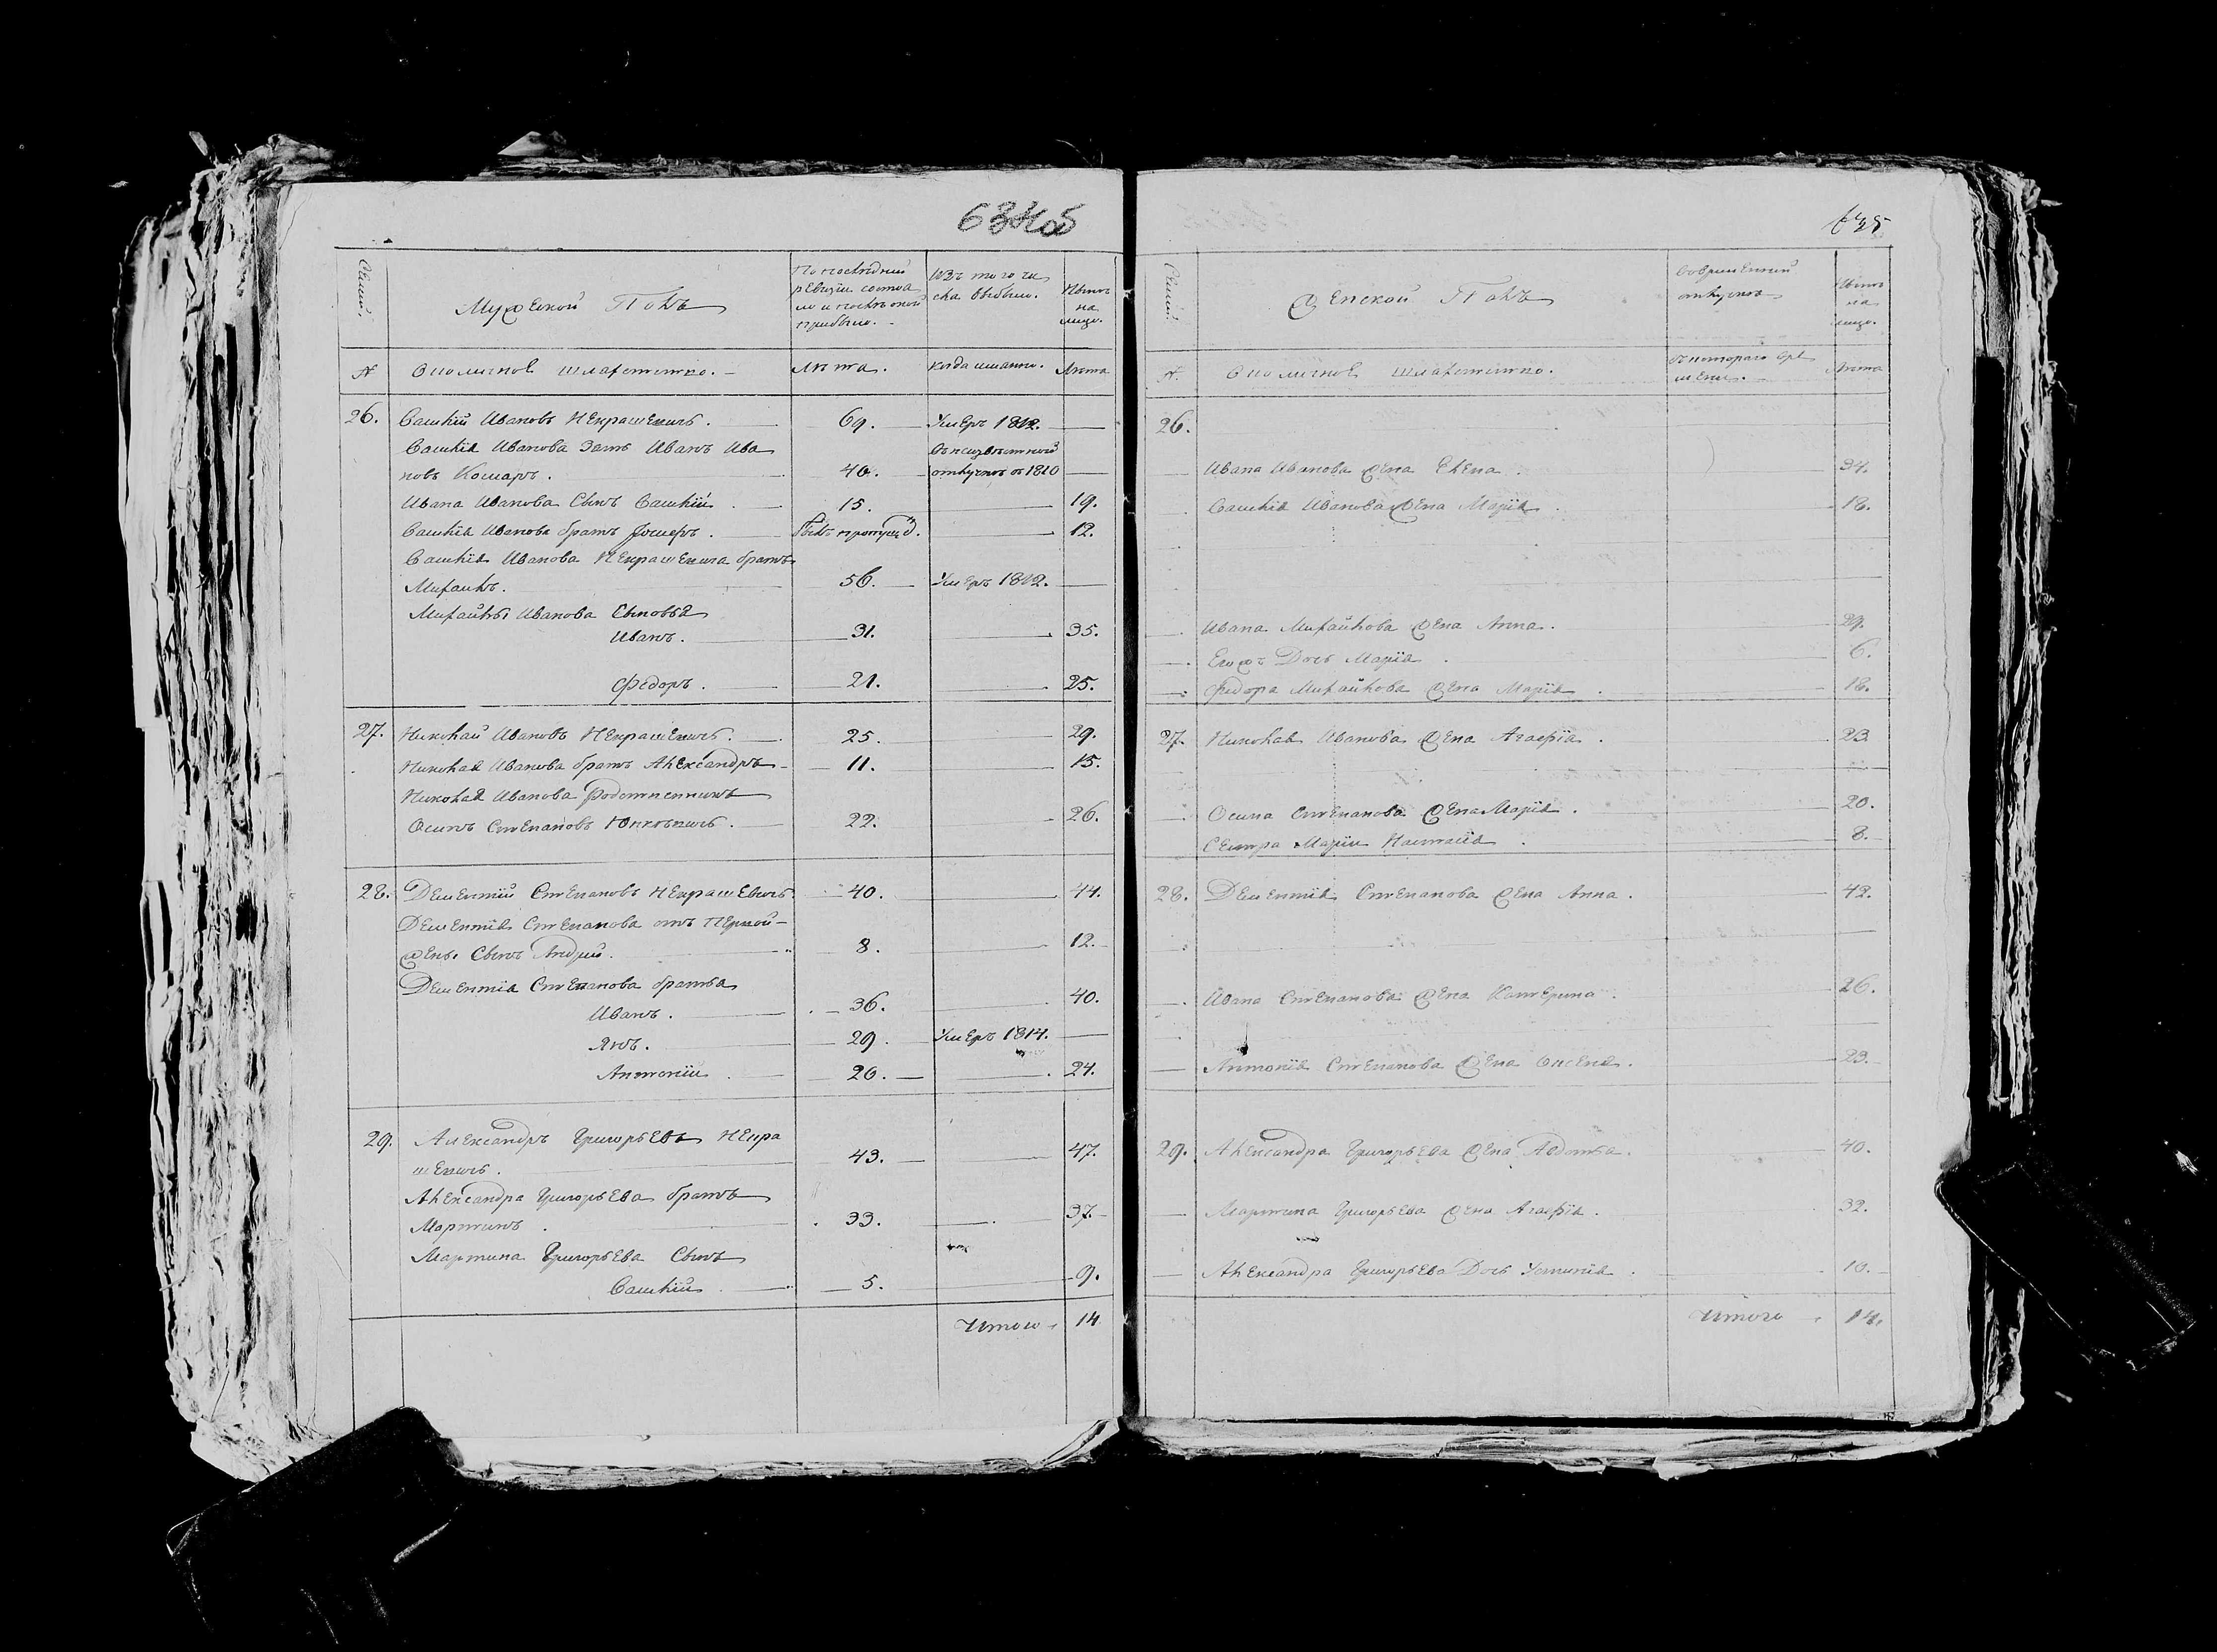 635
Семьи.
Мужеской Полъ
По последней
ревизіи состоя
ло и после оной
прибыло.
Изъ того чи
сла выбыло.
Ныне
на
лицо.
№
Околичной шляхетство.
Лета.
Когда имянно.
Лета
26. Василій Ивановъ Некрашевичъ. 69. Умеръ 1812.
Василія Иванова Зять Иванъ Ива
новъ Комаръ. 40. отлучкѣ съ 1810
Ивана Иванова Сынъ Василій 15. 19.
Василія Иванова братъ 12.
Василія Иванова Некрашевича братъ
Михайло. 56. Умеръ 1812.
Михайлы Иванова Сыновья
Иванъ. 31. 35.
Федоръ. 21. 25.
27. Николай Ивановъ Некрашевичъ. 25. 29.
Николая Иванова братъ Александръ 11. 15.
Николая Иванова Родственникъ
Осипъ Степановъ 22. 26.
28. Дементій Степановъ Некрашевичъ. 40. 44.
Дементія Степанова отъ первой
жены Сынъ Андрей. 8. 12.
Дементія Степанова братья
Иванъ. 36. 40.
Янъ. 29. Умеръ 1814.
Антоній 20. 24.
29. Александръ Григорьевъ Некра
шевичъ. 43. 47.
Александра Григорьева братъ
Мартинъ. 33. 37.
Мартина Григорьева Сынъ
Василій 5. 9.
Итого 14
635
Семьи.
Женской Полъ
Во временной
отлучке
Ныне
на
лицо.
№.
Околичной шляхетство.
Съ котораго вре
мени.
Лета
26.
Ивана Иванова Жена Елена. 34.
Василія Иванова Жена Марія. 18.
Ивана Михайлова Жена Анна. 29.
Егожъ Дочь Марія. 6.
Федора Михайлова Жена Марія. 18.
27. Николая Иванова Жена Агафія. 23
Осипа Степанова Жена Марія. 20.
Сестра Маріи Настасія 8.
28. Дементія Степанова Жена Анна. 42.
Ивана Степанова Жена Катерина. 26.
Антонія Степанова Жена 23.
29. Александра Григорьева Жена Авдотья. 40.
Мартина Григорьева Жена Агафія. 32.
Александра Григорьева Дочь Устинія. 10.
Итого 14.